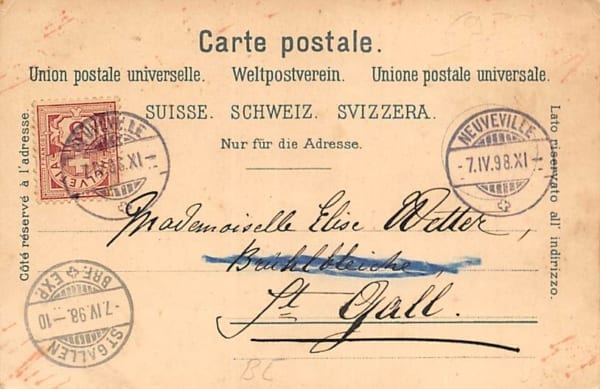 Carte postale.
Union postale universelle. Weltpostverein. Unione postale universale.
SUISSE. SCHWEIZ. SVIZZERA.
Nur für die Adresse.
Côté réservé à l'adresse.
Lato riservato all' indirizzo.
HELVETIA
NEUVEVILLE
-7.IV.98.XI-
Mademoiselle Elise Wetter,
Brühlbleiche,
St. Gall.
BRF. EXP.
-7.IV.98.-10
ST. GALLEN
BL